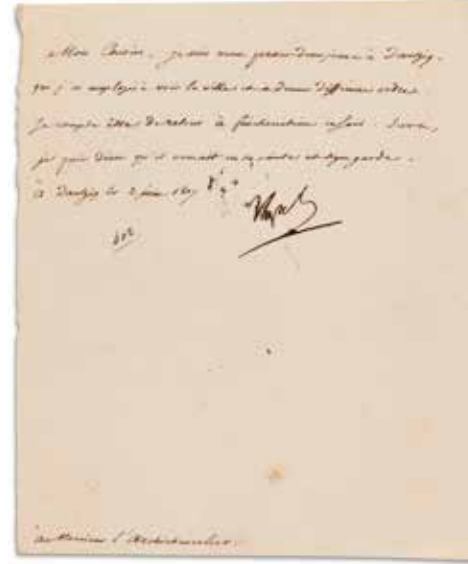 Mon Cousin, je suis venu passer deux jours à Dantzig.
que j'ai employés à voir la ville et à donner différens ordres.
Je compte être de retour à finckenstein ce soir. Sur ce,
je prie Dieu qu'il vous ait en sa sainte et digne garde.
à Dantzig le 2 juin 1807
Nap
602